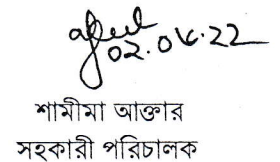 02.06.22
শামীমা আক্তার
সহকারী পরিচালক